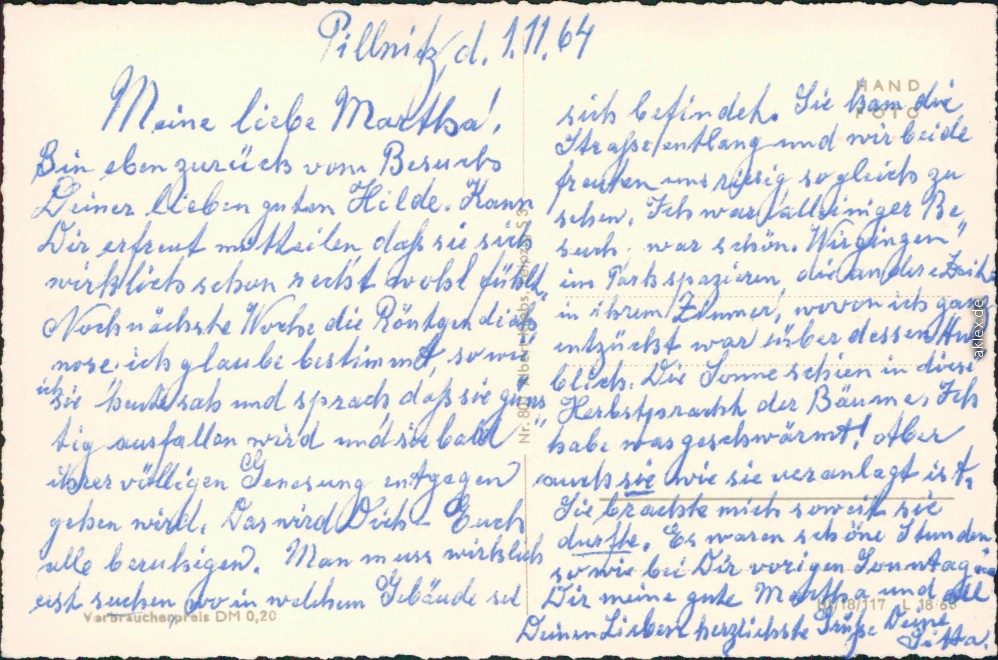 Pillnitz, d. 1.11.64
Meine liebe Martha!
Bin eben zurück vom Besuchs
Deiner lieben guten Hilde. Kann
Dir erfreut mitteilen daß sie sich
wirklich schon recht wohl fühlt
Noch nächste Woche die Röntgendiag
nose ich glaube bestimmt, so wie
ich
sie heute sah und sprach, daß sie güns
tig ausfallen wird und sie bald
ihrer völligen Genesung entgegen
gehen wird. Das wird Dich - Euch
alle beruhigen. Man muss wirklich
erst suchen wo in welchem Gebäude sie
Verbraucherpreis DM 0,20
HAND
FOTO
sich befindet. Sie kam die
Straße entlang und wir beide
freuten uns riesig so gleich zu
sehen. Ich war alleiniger Be
such. war schön. Wir gingen
im Park spazieren, die andere Zeit
in ihrem Zimmer, wovon ich ganz
entzückt war über dessen An
blick. Die Sonne schien in diese
Herbstpracht der Bäume. Ich
habe was geschwärmt! Aber
auch sie wie sie veranlagt ist.
Sie brachte mich soweit sie
durfte. Es waren schöne Stunden
so wie bei Dir vorigen Sonntag
Dir meine gute Martha und all
Deinen Lieben herzlichste Grüße Deine
Gitta.
/18/117 L 18/63
aklex.de